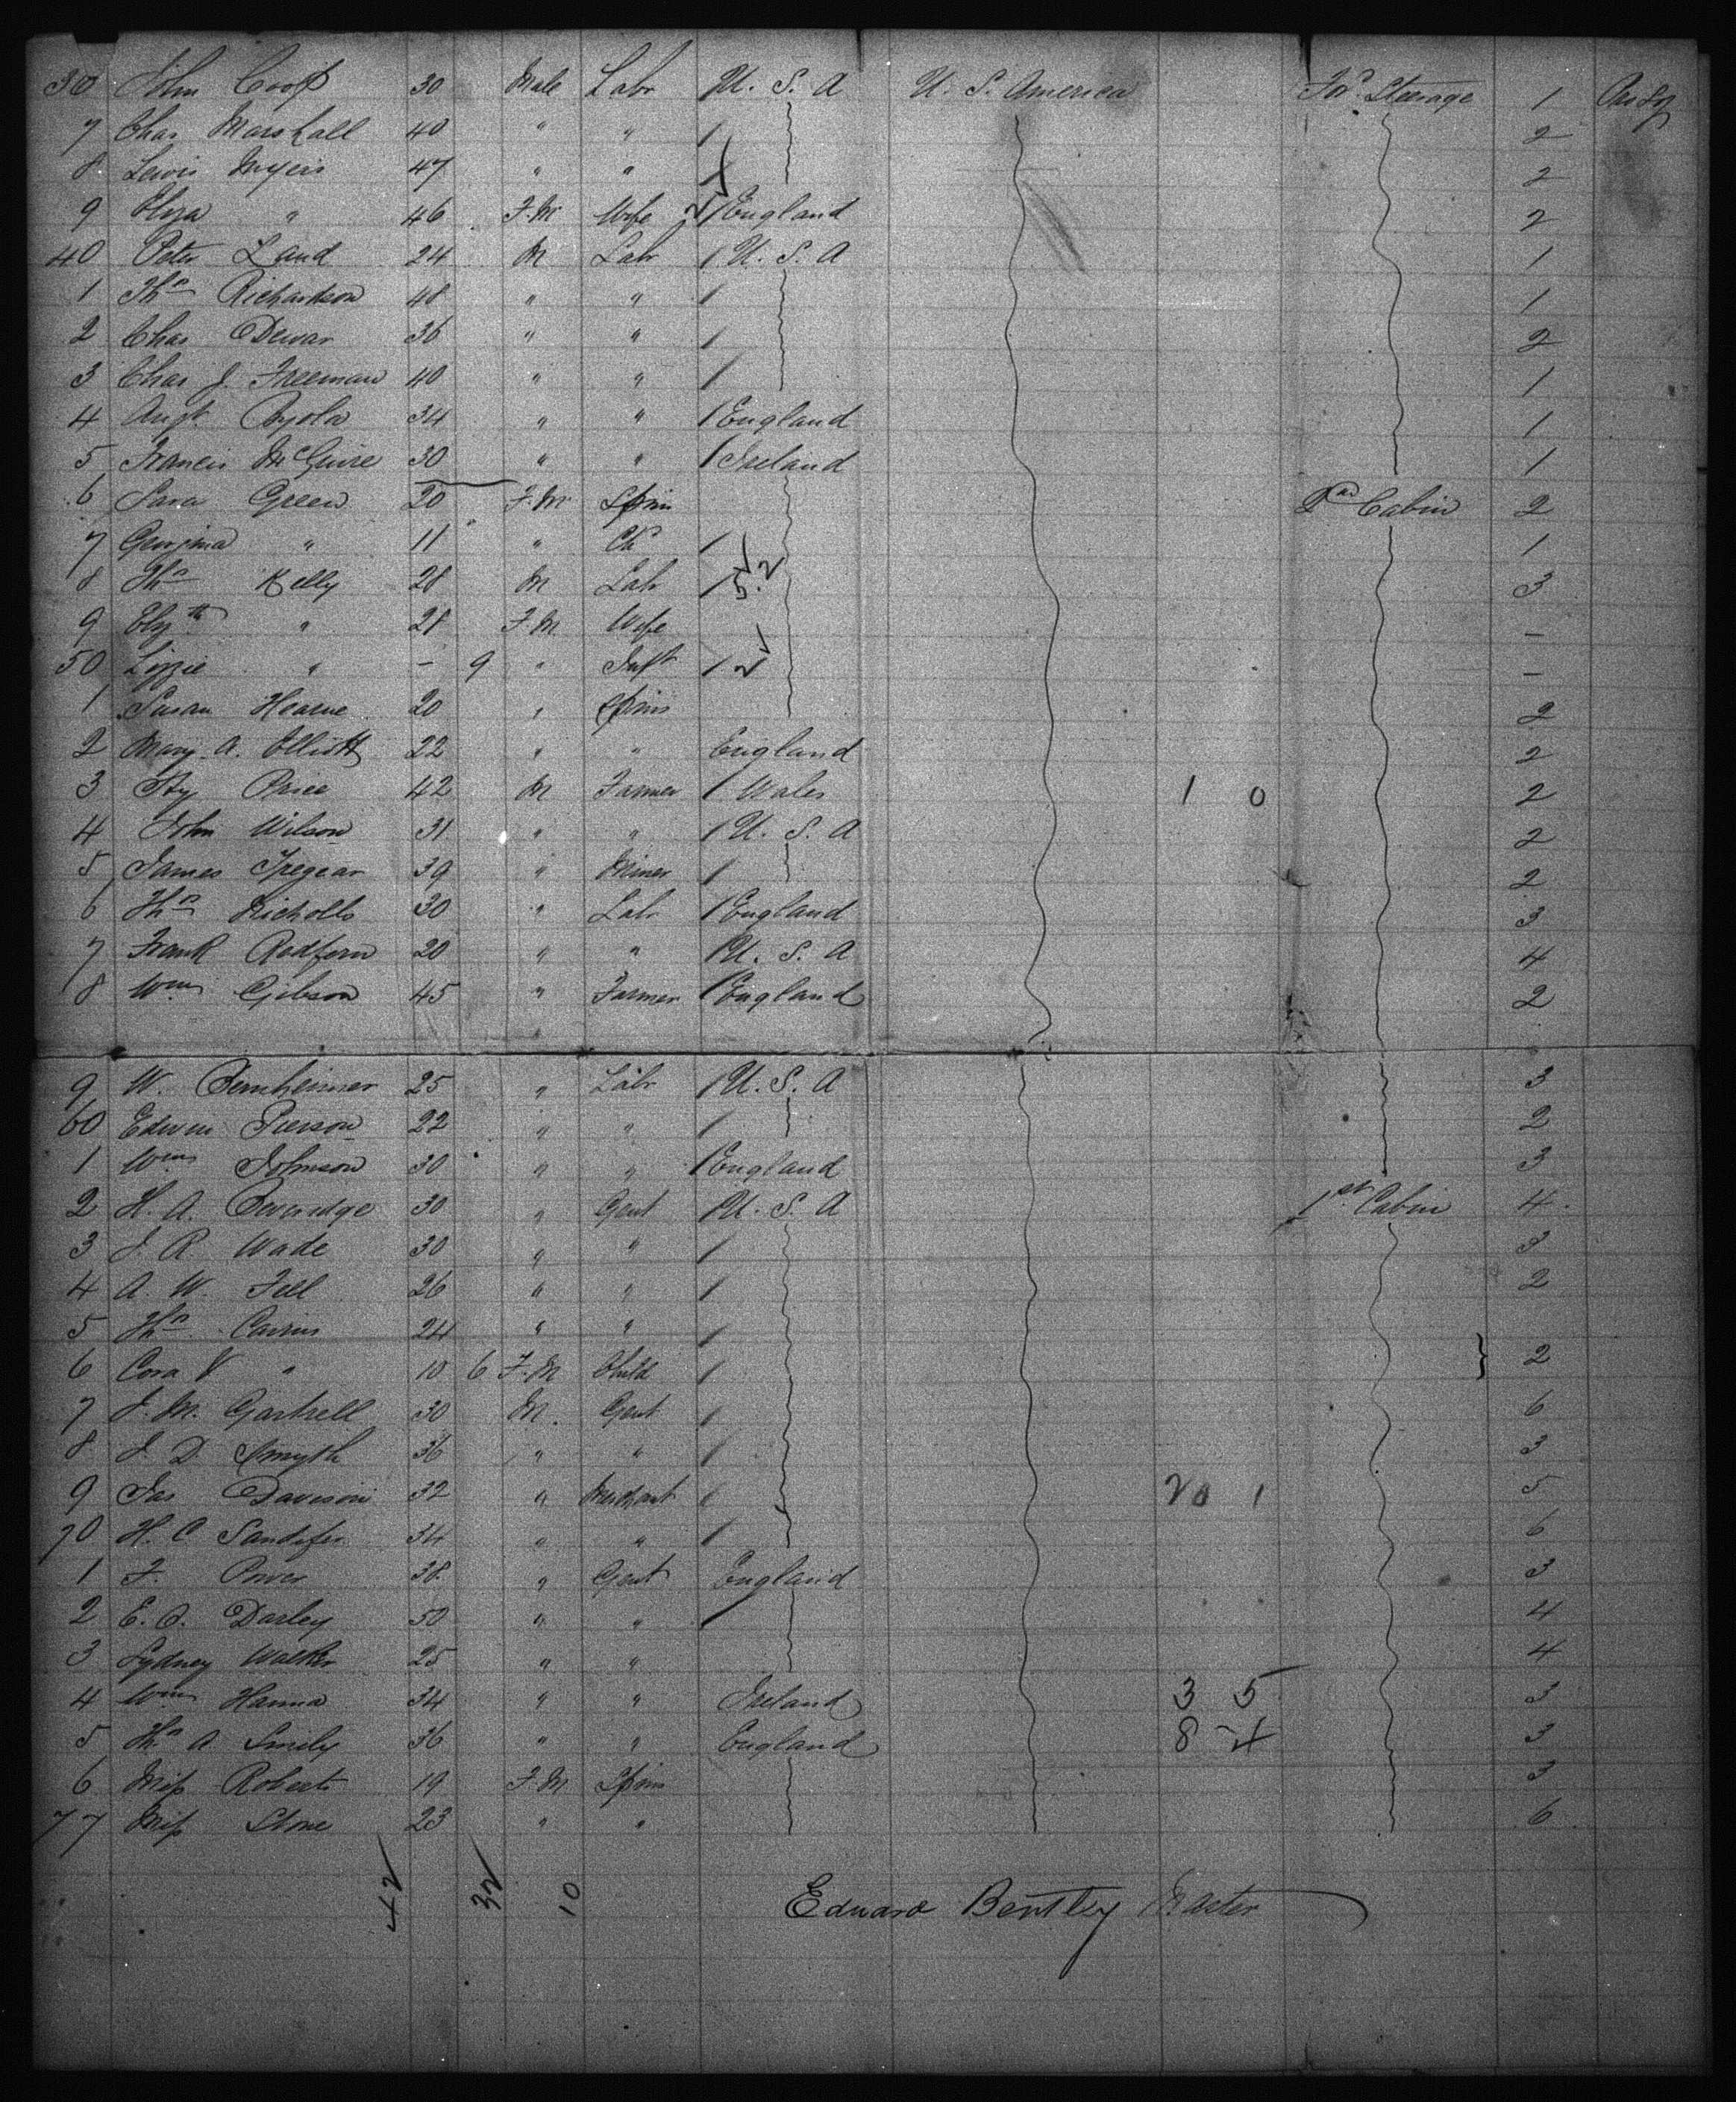 30 John Coop 30 Male Labr U. S. A U. S. America Fd Steerage 1
7 Chas Marshall 40 " " / 2
8 Lewis Myers 47 " " / 2
9 Eliza " 46 F.M Wife / England 2
40 Peter Land 24 M Labr / U. S. A 1
1 Ths Richardson 48 " " / 1
2 Chas Dewar 36 " " / 2
3 Chas J. Freeman 40 " " / 1
4 Augt 34 " " / England 1
5 Francis McGuire 30 " " / Ireland 1
6 Sara Green 20 F.M Spin 2nd Cabin 2
7 Georgina " 11 " Ch / 1
8 Ths Kelly 28 M Labr / 5.2 3
9 Elizth " 28 F.M Wife –
50 Lizzie " – 9 " Inft / 2 –
1 Susan Hearne 20 " Spins 2
2 Mary A. Elliott 22 " " England 2
3 Hy Price 42 M Farmer / Wales 1 0 2
4 John Wilson 31 " " / U. S. A 2
5 James Tregear 39 " Miner / 2
6 Ths Nicholls 30 " Labr / England 3
7 Frank Redfern 20 " " / U. S. A 4
8 Wm Gibson 45 " Farmer / England 2
9 W. Bernheimer 25 " Labr / U. S. A 3
60 Edwin Pierson 22 " " / 2
1 Wm Johnson 30 " " / England 3
2 H. A. Beveridge 30 " Gent / U. S. A 1st Cabin 4
3 J. R. Wade 30 " " / 3
4 A. W. Fell 26 " " / 2
5 Ths Cairns 24 " " /
6 Cora V " 10 6 F.M Child / } 2
7 J. M. Gartrell 30 M. Gent / 6
8 J. D. Smyth 36 " " / 3
9 Jas Davison 32 " Merchant / 20 1 5
70 H. C. Sandifer 34 " " / 6
1 F. Power 38 " Gent England 3
2 E. A. Darley 50 " " / 4
3 Sydney Walker 25 " " 4
4 Wm Hanna 34 " " Ireland 3 5 3
5 Ths A. Smily 36 " " England 8 4 3
6 Miss Roberts 19 F.M Spins 3
77 Miss Stone 23 " " 6
42 32 10
Edward Bentley Master